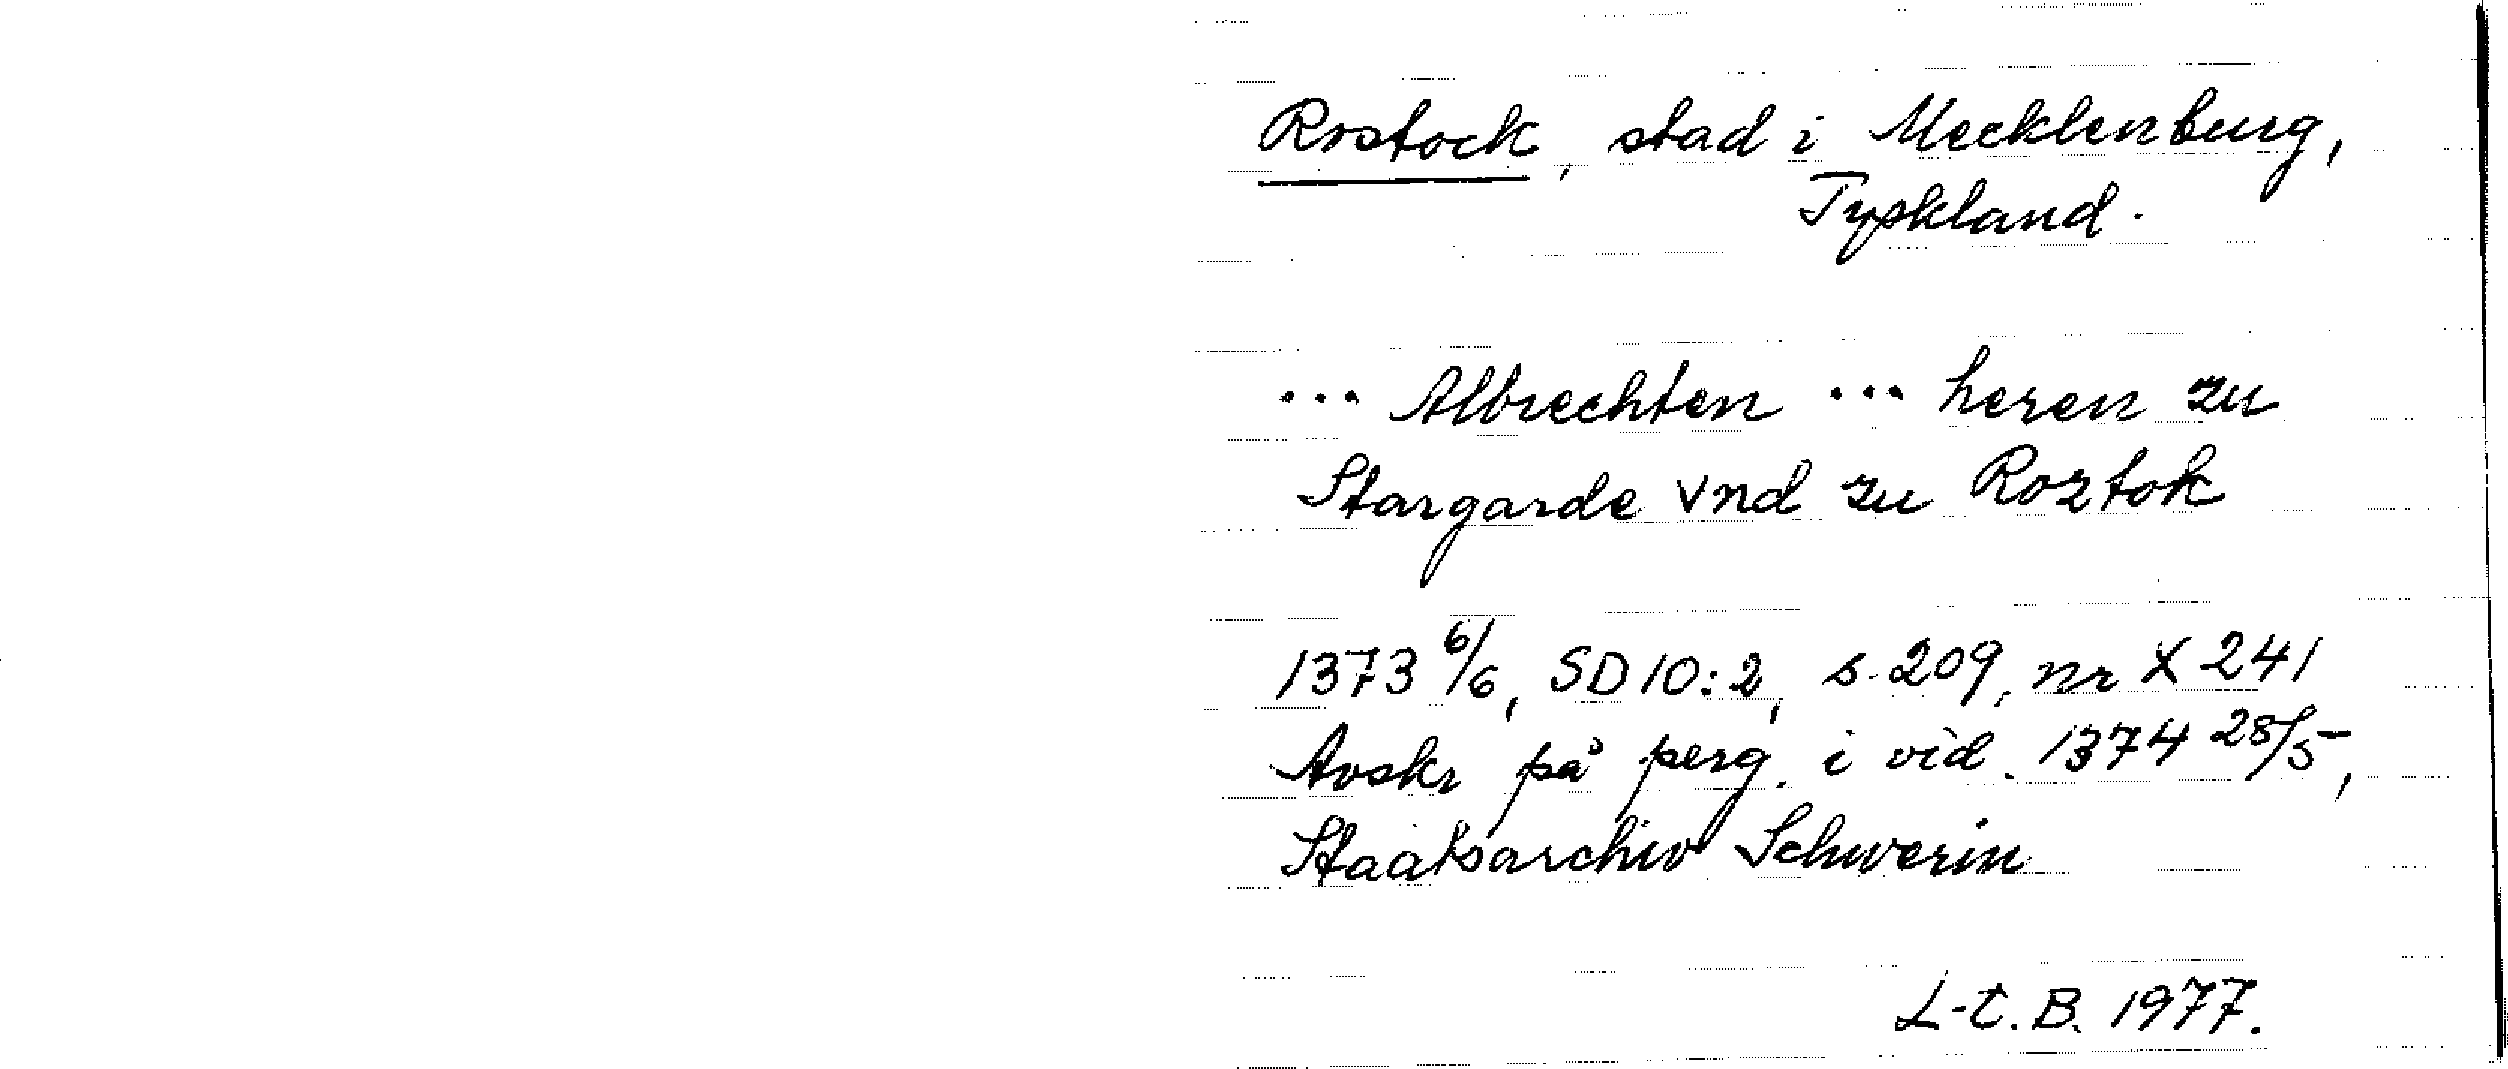 Rostock, stad i Mecklenburg,
Tyskland.
... Albrechten ... heren zu
Stargarde vnd zu Roztok
1373 6/6, SD 10:2, s. 209, nr X 241
Avskr på perg. i vid. 1374 28/5,
Staatsarchiv Schwerin
L-t. B. 1977.